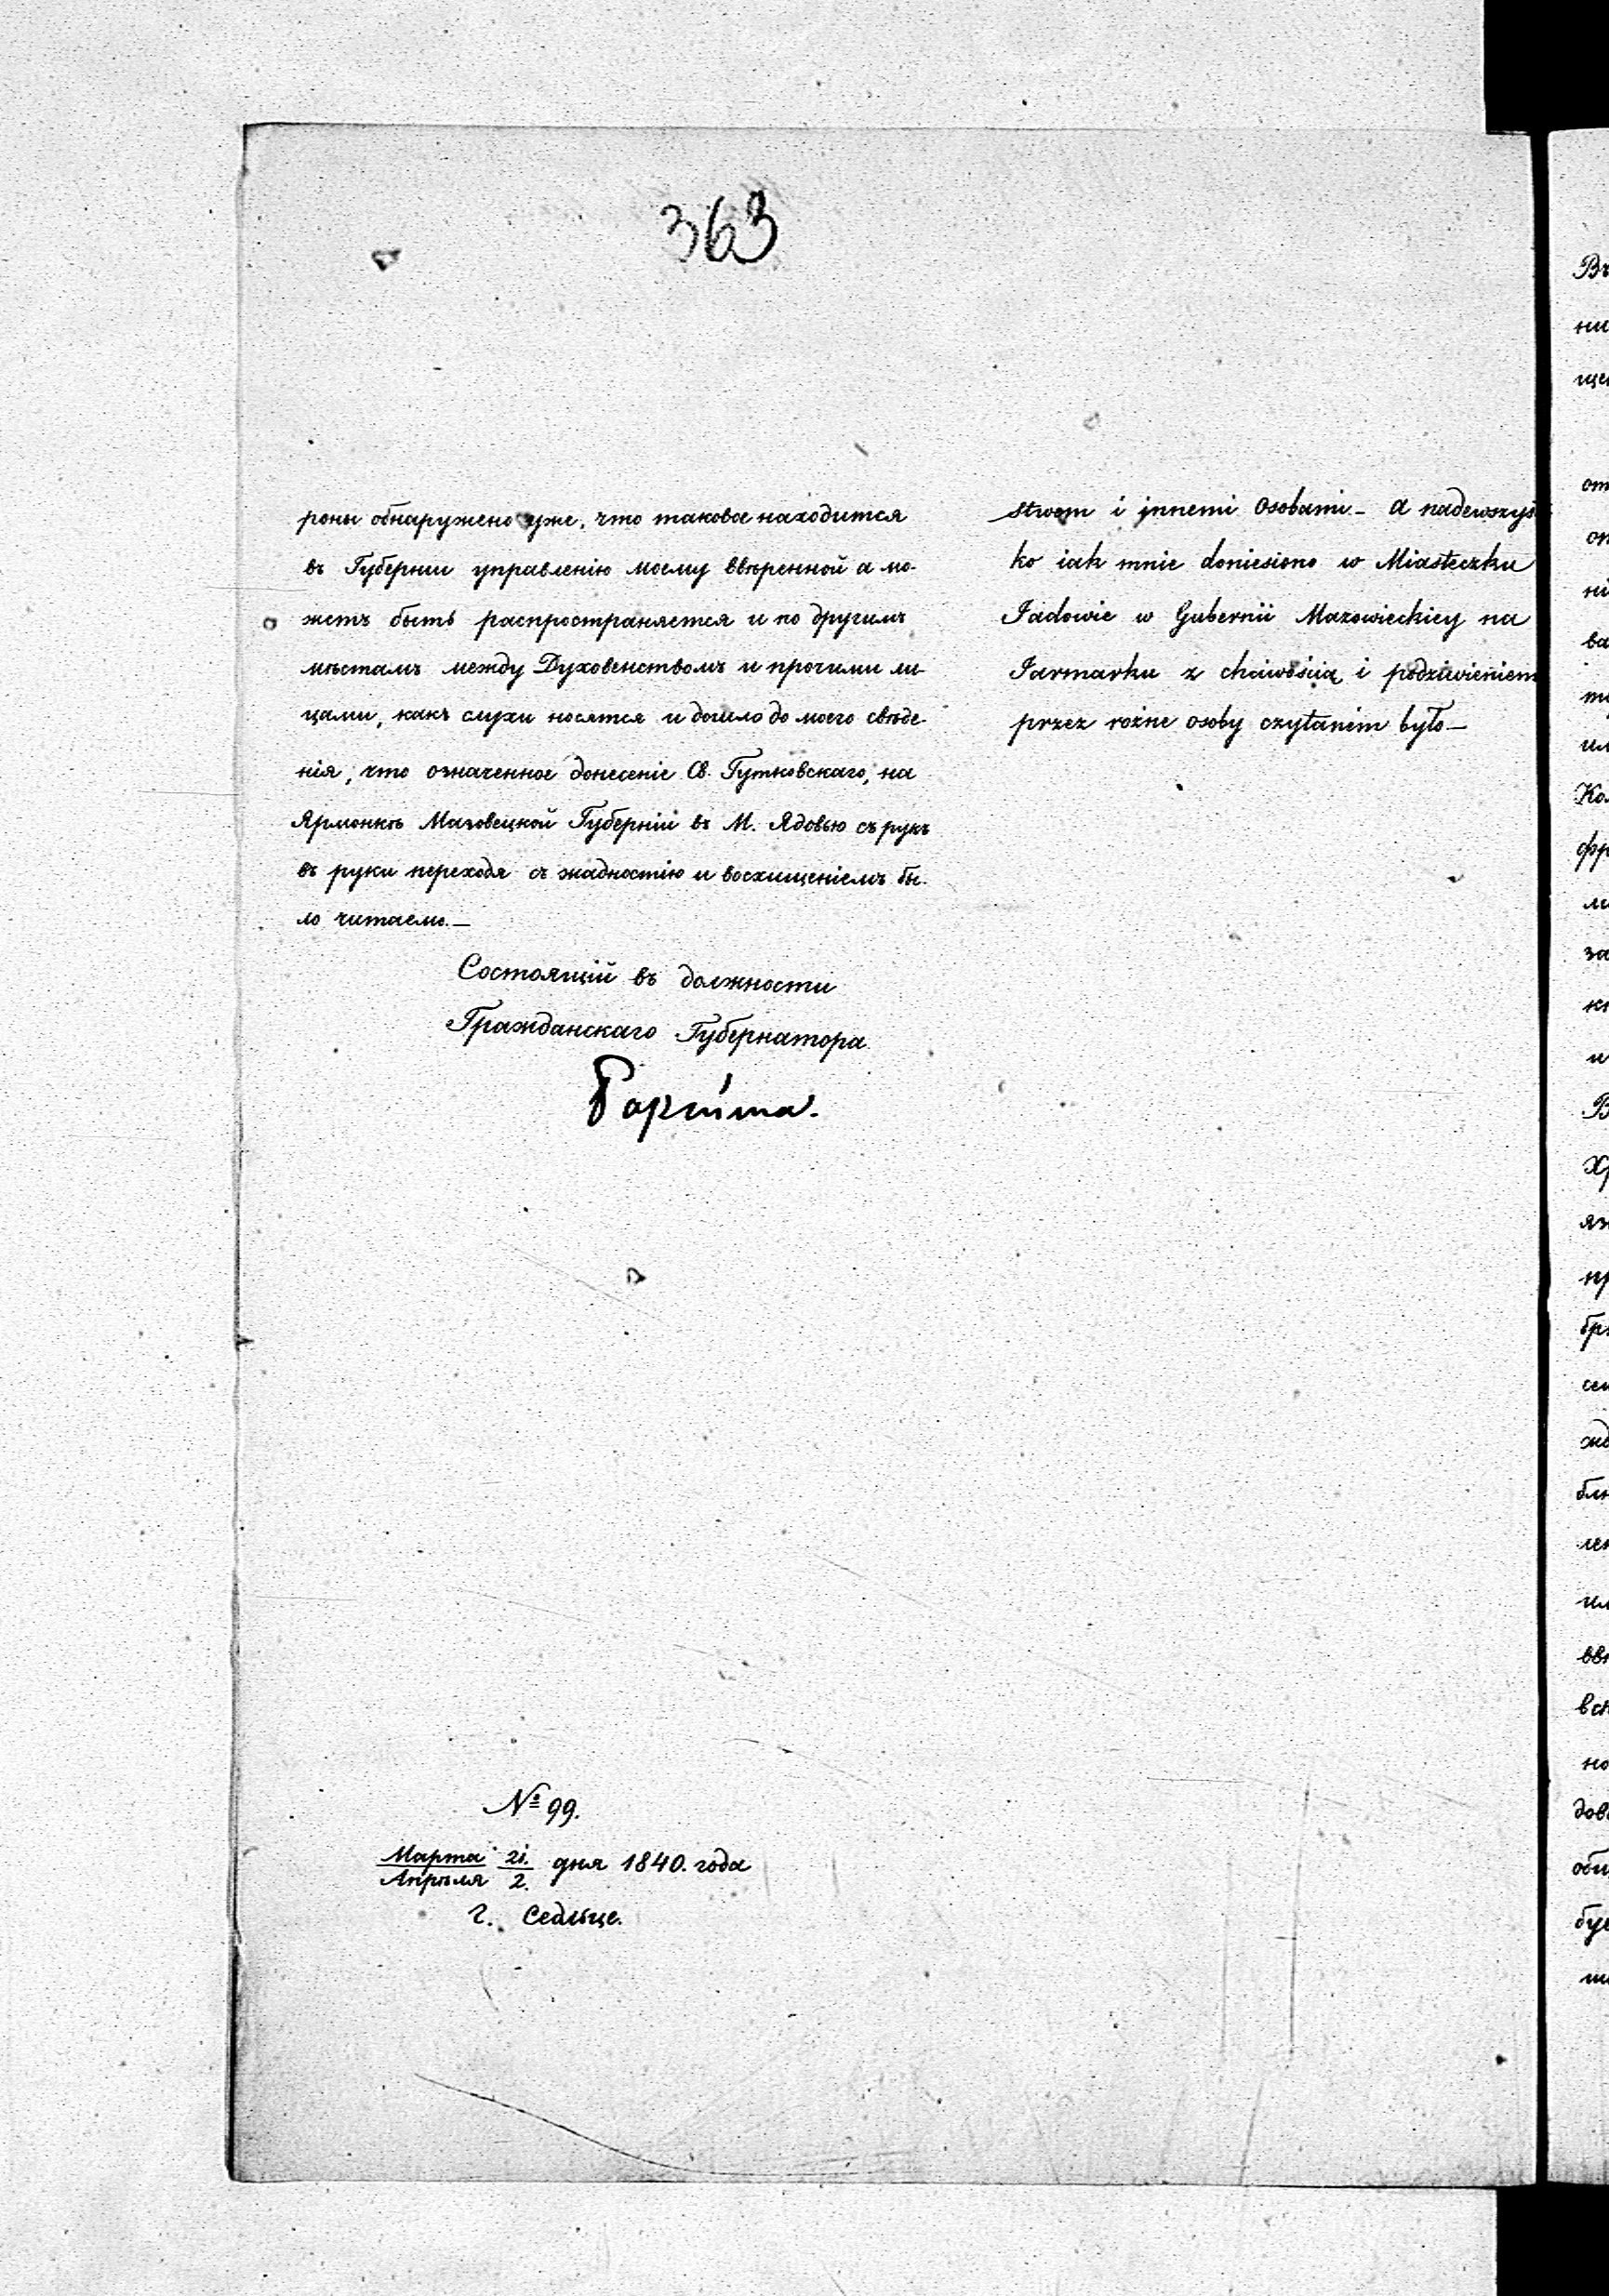 363
роны обнаружено уже, что таковое находится
въ Губернии управленію моему ввѣренной а мо-
жетъ быть распространяется и по другимъ
мѣстамъ между Духовенствомъ и прочими ли-
цами, какъ слухи носятся и дошло до моего свѣде-
нія, что означенное донесеніе Св. Гутковскаго, на
Ярмонкѣ Мазовецкой Губерніи въ М. Ядовѣ съ рукъ
въ руки переходя съ жадностію и восхищеніемъ бы-
ло читаемо.—
Состоящій въ должности
Гражданскаго Губернатора
№ 99.
Марта 21.
Апрѣля 2. дня 1840. года
г. Седльце.
stwem i jnnemi Osobami— a nadewszyst
ko iak mnie doniesiono w Miasteczku
Jadowie w Gubernii Mazowieckiey na
Jarmarku z chciwością i podziwieniem
przez rożne osoby czytanem było—